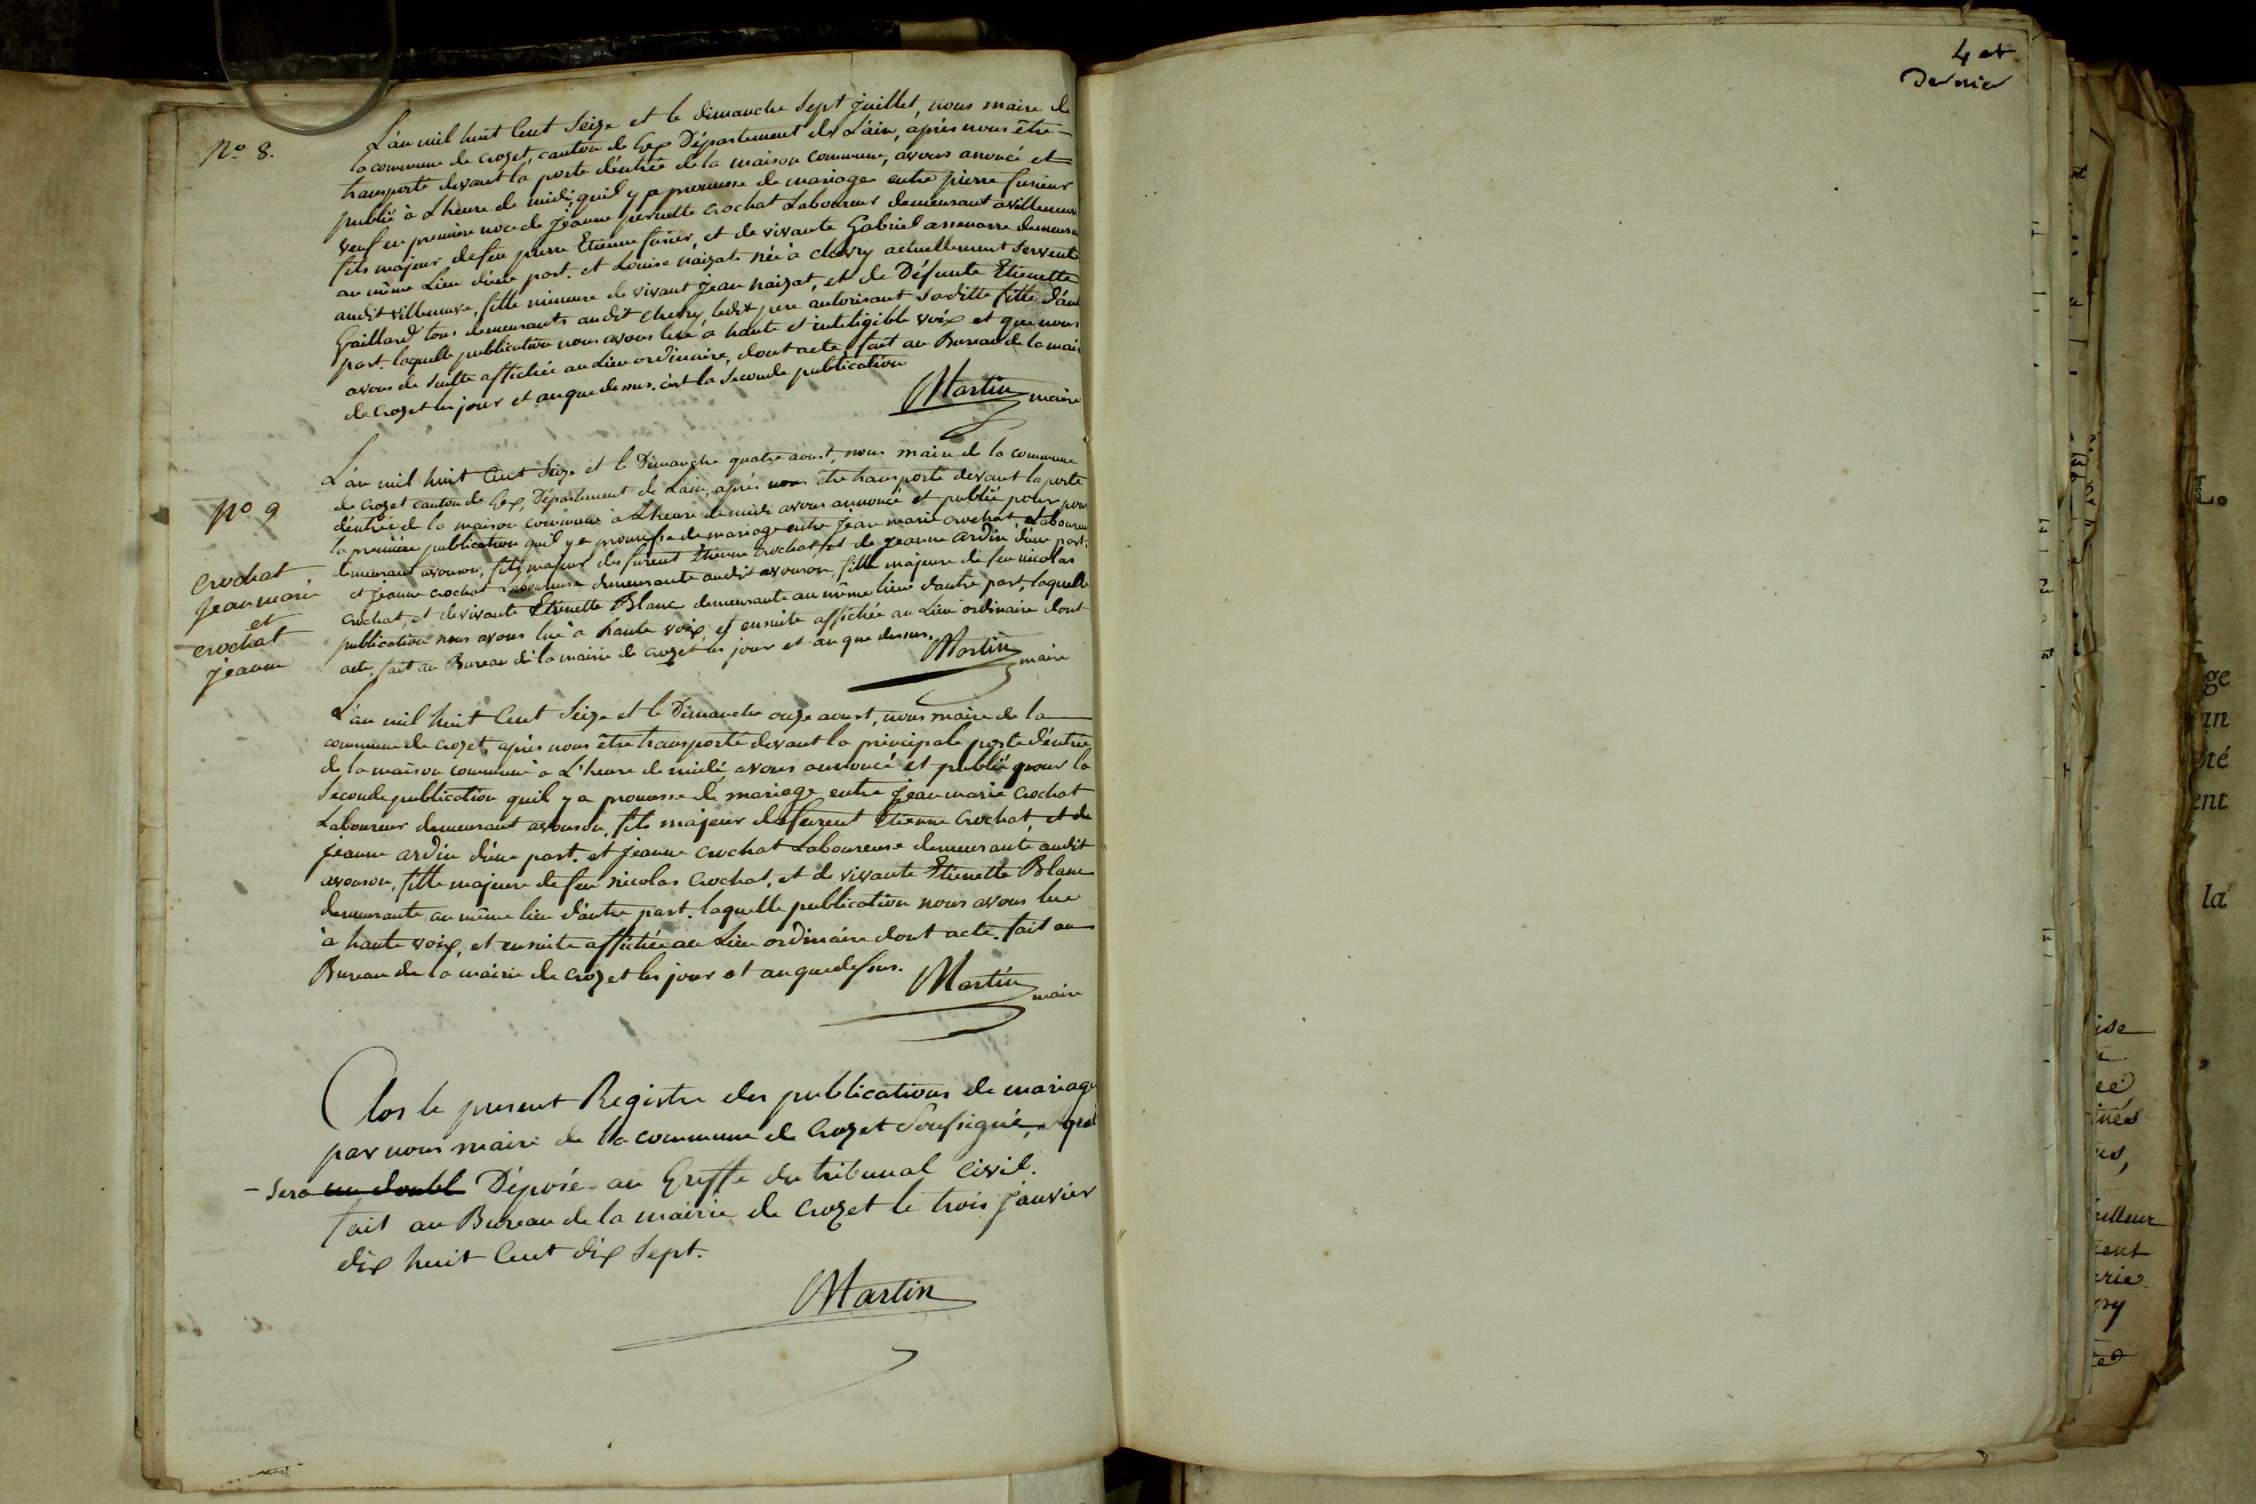 4 et
Dernier
N.o 8.
L'an mil huit Cent Seize et le dimanche Sept juillet, nous maire de
la commune de crozet, canton de Gex Département de L'ain, après nous être
transporté devant la porte d'entrée de la maison commune, avons anoncé et
publié à L'heure de midi, quil y a promesse de mariage entre pierre
veuf en première noce de Jeanne pernette Crochat Laboureur demeurant a villeneuve
fils majeur de feu pierre Etienne et de vivante Gabriel
au même Lieu d'une part. et Louise naizat née à chevry actuellement Servente
audit villeneuve, fille mineure de vivant Jean naizat, et de Défunte Etienette
Gaillard tous demeurants audit chevry, ledit pere autorisant Saditte fille d'autre
part. laquelle publication nous avons lue à haute et inteligible voix et que nous
avons de Suitte affichée au Lieu ordinaire, dont acte, fait au Bureau de la mairie
de crozet les jour et an que dessus. c'est la Seconde publication
Martin maire
N.o 9
crochat
Jean marie
et
crochat
jeanne
L'an mil huit Cent Seize et le Dimanche quatre aoust, nous maire de la commune
de crozet canton de Gex, Département de L'ain, après nous être transporté devant la porte
d'entrée de la maison commune à L'heure de midi avons annoncé et publié pour
la première publication quil y a promesse de mariage entre Jean marie crochat, Laboureur
demeurant avouson, fils majeur des furent Etienne crochat, et de Jeanne ardin d'une part.
et Jeanne crochat Laboureuse demeurante audit avouson, fille majeure de feu nicolas
crochat, et de vivante Etienette Blanc demeurante au même lieu d'autre part, laquelle
publication nous avons lue à haute voix, et ensuite affichée au Lieu ordinaire dont
acte, fait au Bureau de la mairie de crozet les jour et an que dessus.
Martin maire
L'an mil huit Cent Seize et le Dimanche onze aoust, nous maire de la
commune de crozet, après nous être transporté devant la principale porte d'entrée
de la maison commune à L'heure de midi, avons annoncé et publié pour la
Seconde publication quil y a promesse de mariage entre jean marie crochat
Laboureur demeurant avouson, fils majeur des furent Etienne Crochat, et de
jeanne ardin d'une part. et jeanne crochat Laboureuse demeurante audit
avouson, fille majeure de feu nicolas Crochat, et de vivante Etienette Blanc
demeurante au même lieu d'autre part. laquelle publication nous avons lue
à haute voix, et ensuite affichée au Lieu ordinaire dont acte. fait au
Bureau de la mairie de crozet les jour et an que dessus.
Martin maire
Clos le present Registre des publications de mariage
par nous maire de la commune de Crozet Soussigné, qui
Sera un doubl Déposé au Greffe du tribunal Civil.
fait au Bureau de la mairie de Crozet le trois janvier
dix huit Cent dix Sept.
Martin